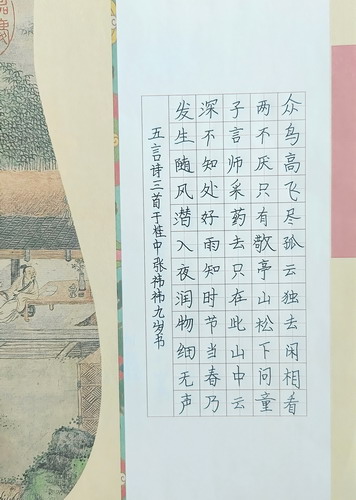 众鸟高飞尽孤云独去闲相看
两不厌只有敬亭山松下问童
子言师采药去只在此山中云
深不知处好雨知时节当春乃
发生随风潜入夜润物细无声
五言诗三首于桂中张祎祎九岁书